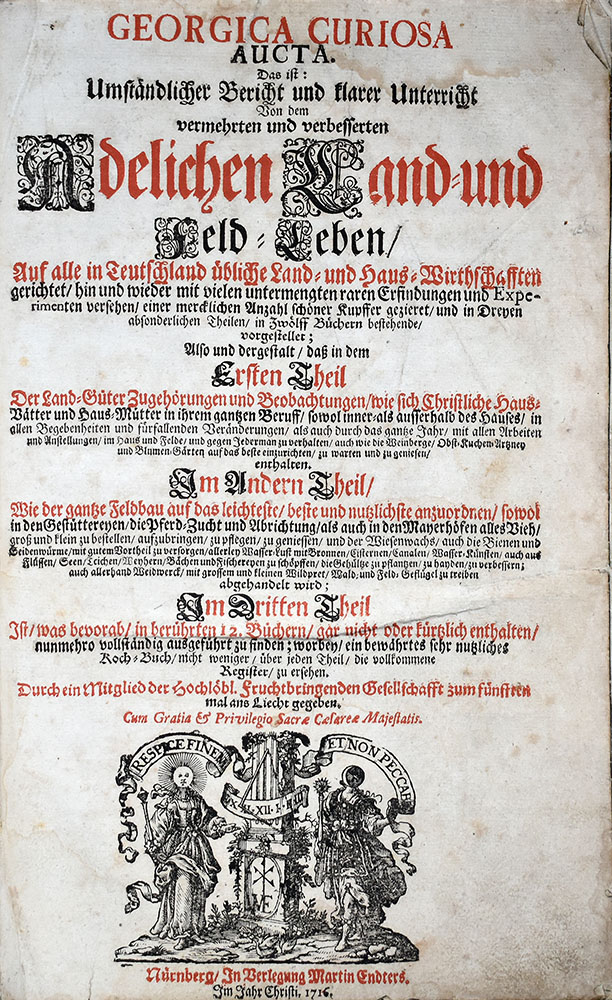 GEORGICA CURIOSA
AUCTA.
Das ist:
Umständlicher Bericht und klarer Unterricht
Von dem
vermehrten und verbesserten
Adelichen Land- und
Feld-Leben/
Auf alle in Teutschland übliche Land- und Haus-Wirthschafften
gerichtet/ hin und wieder mit vielen untermengten raren Erfindungen und Expe-
rimenten versehen/ einer mercklichen Anzahl schöner Kupffer gezieret/ und in Dreyen
absonderlichen Theilen/ in Zwölff Büchern bestehende/
vorgestellet;
Also und dergestalt/ daß in dem
Ersten Theil
Der Land-Güter Zugehörungen und Beobachtungen/ wie sich Christliche Haus-
Vätter und Haus-Mütter in ihrem gantzen Beruff/ sowol inner- als ausserhalb des Hauses/ in
allen Begebenheiten und fürfallenden Veränderungen/ als auch durch das gantze Jahr/ mit allen Arbeiten
und Anstellungen/ im Haus und Felde/ und gegen Jederman zu verhalten/ auch wie die Weinberge/ Obst-Kuchen-Artzney
und Blumen-Gärten auf das beste einzurichten/ zu warten und zu geniesen/
enthalten.
Im Andern Theil/
Wie der gantze Feldbau auf das leichteste/ beste und nutzlichste anzuordnen/ sowol
in den Gestüttereyen/ die Pferd-Zucht und Abrichtung/ als auch in den Mayerhöfen alles Vieh/
groß und klein zu bestellen/ aufzubringen/ zu pflegen/ zu geniessen/ und der Wiesenwachs/ auch die Bienen und
Seidenwürme/ mit gutem Vortheil zu versorgen/ allerley Wasser-Lust mit Bronnen/ Cisternen/ Canalen/ Wasser-Künsten/ auch aus
Flüssen/ Seen/ Teichen/ Weyhern/ Bächen und Fischereyen zu schöpffen/ die Gehültze zu pflantzen/ zu hayden/ zu verbessern;
auch allerhand Weidwerck/ mit grossem und kleinen Wildpret/ Wald- und Feld-Geflügel zu treiben
abgehandelt wird;
Im Dritten Theil
Ist/ was bevorab/ in berührten 12. Büchern/ gar nicht oder kürtzlich enthalten/
nunmehro vollständig ausgeführt zu finden; worbey/ ein bewährtes sehr nutzliches
Koch-Buch/ nicht weniger/ über jeden Theil/ die vollkommene
Register/ zu ersehen.
Durch ein Mitglied der Hochlöbl. Fruchtbringenden Gesellschafft zum fünfften
mal ans Liecht gegeben.
Cum Gratia & Privilegio Sacræ Cæsareæ Majestatis.
RESPICE FINEM
ET NON PECCAB
ME
Nürnberg/ In Verlegung Martin Endters.
Im Jahr Christi. 1716.